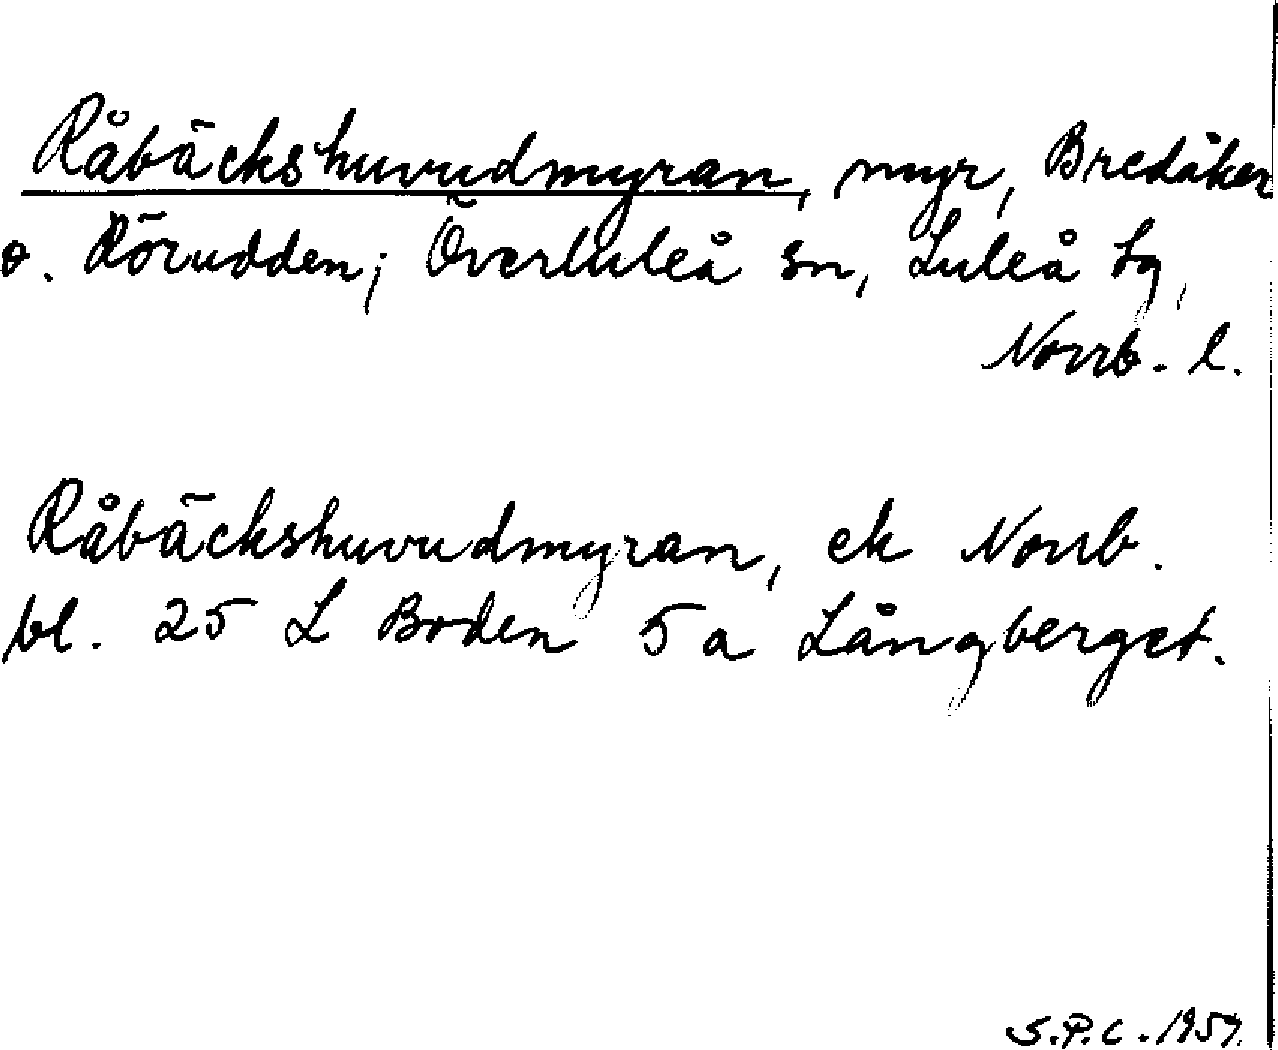 Råbäckshuvudmyran, myr, Bredåker
o. Rörudden; Överluleå sn, Luleå tg,
Norrb. l.
Råbäckshuvudmyran, ek Norrb.
bl. 25 L Boden 5 a Långberget.
S.P.C. 1957.